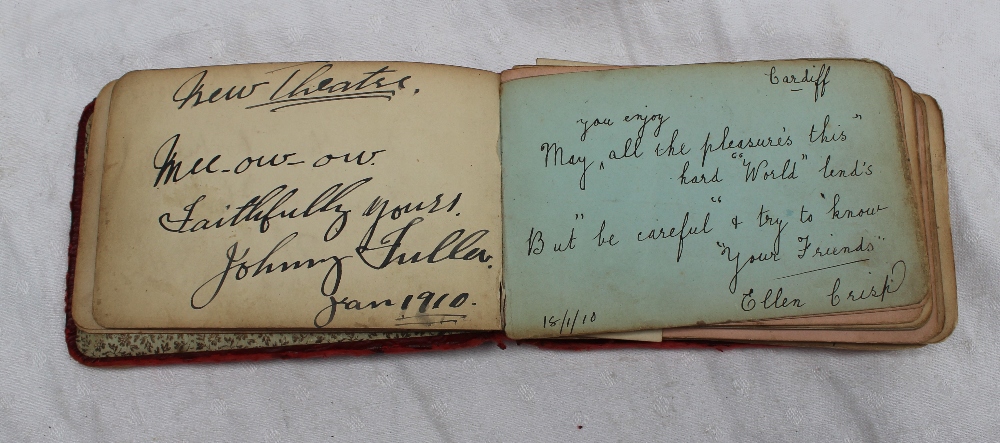 New Theatre.
Mee-ow-ow.
Faithfully yours.
Johnny Fuller.
Jan 1910.
Cardiff
you enjoy
May ‸ all the pleasure's this"
hard "World" lend's
But "be careful" & try to "know
"Your Friends"
Ellen Crisp
18/1/10